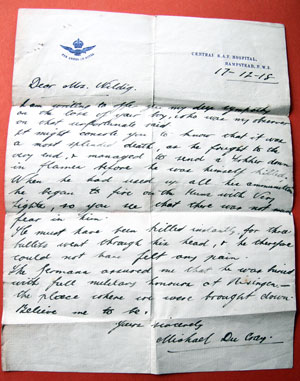 CENTRAL R.A.F. HOSPITAL,
HAMPSTEAD, N.W.3.
17-12-18
Dear Mrs. Weldig,
I am writing to offer you my deep sympathy
on the loss of your boy, who was my observer
on that unfortunate
It might console you to know that it was
a most splendid death, as he fought to the
very end, & managed to send a Fokker down
in flames before he was himself killed.
When he had used up all his ammunition
he began to fire on the Huns with Very
lights, so you see that there was not much
fear in him.
He must have been killed instantly for the
bullets went through his head, & he therefore
could not have felt any pain.
The Germans assured me that he was buried
with full military honours at
the place where we were brought down.
Believe me to be,
Yours sincerely
Michael Du Cray.